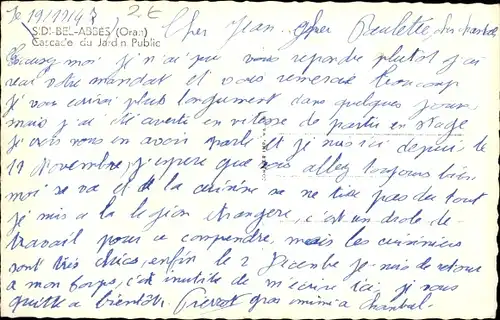 le 19/11/47 2E
SIDI-BEL-ABBÈS (Oran)
Cascade du Jardin Public
Cher Jean, cher Paulette,
Excusez-moi je n'ai pu vous repondre plutot j'ai
reçu votre mandat et vous remercie beaucoup
je vous ecrirai plus longument dans quelques jours
mais j'ai été averti en vitesse de partir en stage
je crois vous en avoir parlé et je suis ici depuis le
11 Novembre, j'espere que vous allez toujours bien
moi sa va et la cuisine sa ne tire pas du tout
je suis a la legion etrangere, c'est un drole de
travail pour se comprendre, mais les cuisiniers
sont tres chics, enfin le 2 Decembre je suis de retour
a mon corps, c'est inutile de m'ecrire ici, je vous
quitte a bientôt. Pierrot gros mimi a Chantal.